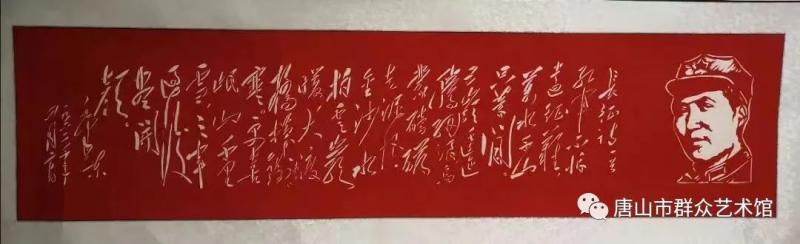 长征诗一首
红军不怕
远征难
萬水千山
只等闲
五嶺逶迤
腾细浪烏
蒙磅礴
走泥丸
金沙水
拍雲崖
暖大渡
橋横铁索
寒更喜
岷山千里
雪三军
过後
尽開
颜
毛泽东
唐山市群众艺术馆